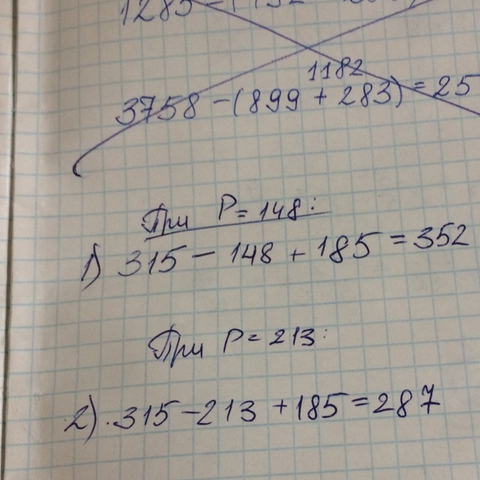 1285 - (
1182
3758 - (899 + 283) = 25
При P = 148:
1) 315 - 148 + 185 = 352
При P = 213:
2) 315 - 213 + 185 = 287